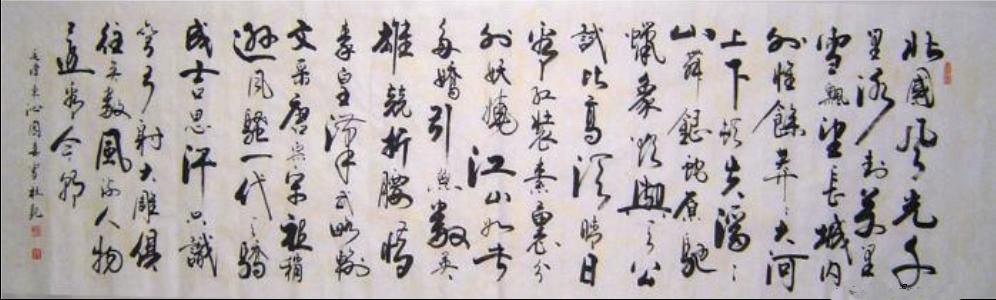 北國風光千
里冰封萬里
雪飄望長城內
外惟餘莽〻大河
上下頓失滔〻
山舞銀蛇原馳
蠟象欲與天公
試比高須晴日
看紅裝素裹分
外妖嬈江山如此
多嬌引無數英
雄競折腰惜
秦皇漢武略輸
文采唐宗宋祖稍
遜風騷一代天驕
成吉思汗只識
彎弓射大雕俱
往矣數風流人物
還看今朝
毛澤東沁園春雪